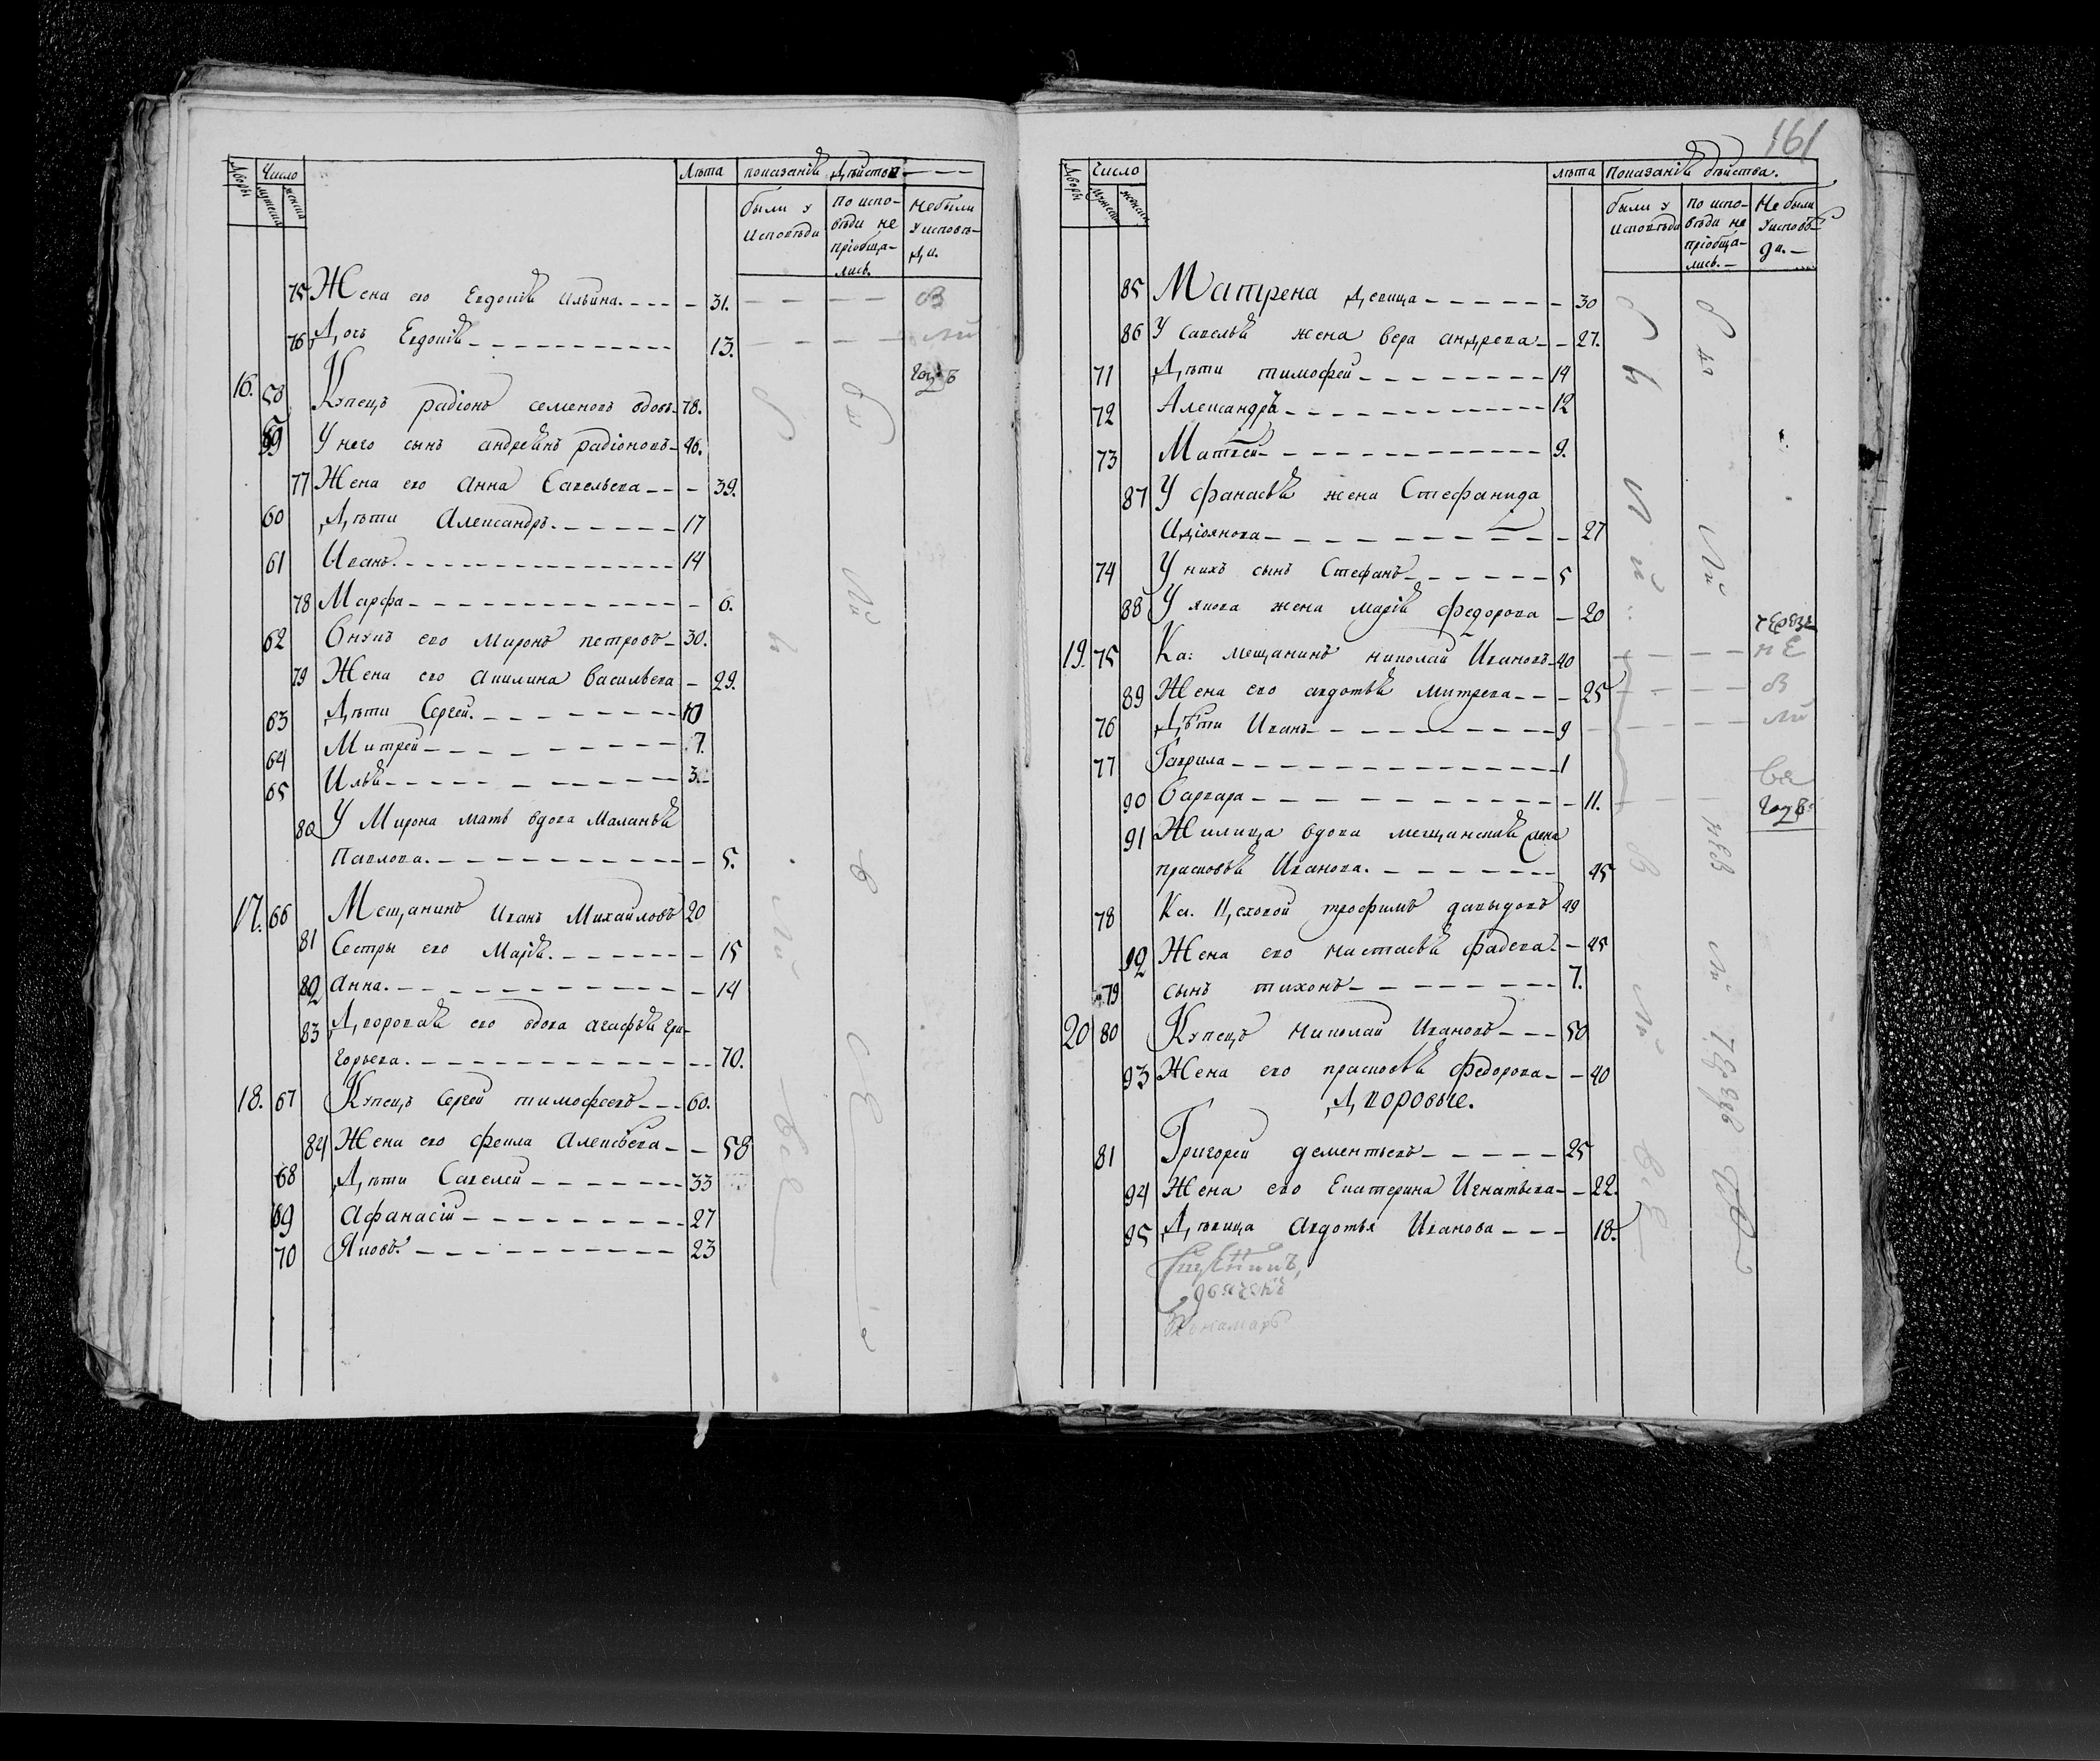 161
Дворы Число Лѣта показанія Дѣйства
мужеска женска
были у Исповѣди
по испо-
вѣди не
пріобща-
лись.
Не были
у исповѣ-
ди.
75 Жена его Евдокія Ильина 31.
76 Дочь Евдокія 13.
16. 58 Купецъ радіонъ семеновъ вдовъ 78.
59 У него сынъ андреянъ радіоновъ 46.
77 Жена его Анна Савельева 39.
60 Дѣти Александръ 17
61 Иванъ 14
78 Марфа 6.
62 Внукъ его Миронъ петровъ 30.
79 Жена его Акилина Васильева 29.
63 Дѣти Сергей 10
64 Митрей 7.
65 Илья 3.
80 У Мирона мать вдова Маланья
Павлова. 5.
17. 66 Мещанинъ Иванъ Михайловъ 20
81 Сестры его Марія 15
82 Анна. 14
83 Дворовая его вдова агафья гри-
горьева. 70.
18. 67 Купецъ Сергей тимофеевъ 60.
84 Жена его фекла Алексѣева 58
68 Дѣти Савелей 33
69 Афанасій 27
70 Яковъ. 23
Дворы Число лѣта Показанія дѣйства.
мужеска женска
были у исповѣди
По испо-
вѣди не
пріобща-
лись.
Не были
у исповѣ-
ди.
85 Матрена Девица 30
86 У савелья жена Вера андреева 27.
71 Дѣти тимофей 14
72 Александръ 12
73 Матвей 9.
87 У фанасья жена Стефанида
27
74 У нихъ сынъ Стефанъ 5
88 У якова жена марія федорова 20
19. 75 Ка: мещанинъ николай Ивановъ 40
89 Жена его авдотья митрева 25
76 Дѣти Иванъ 9
77 Гаврила 1
90 Варвара 11.
91 Жилица вдова мещанская жена
прасковья Иванова. 45
78 Ка. Цеховой трофимъ давыдовъ 49
92 Жена его настасья фадеева 45
79 сынъ тихонъ 7.
20 80 Купецъ николай Ивановъ 50
93 Жена его прасковья Федорова 40
Дворовые.
81 Григорей дементьевъ 25
94 Жена его Екатерина Игнатьева 22.
95 Дѣвица Авдотья Иванова 18.
Священникъ,
дьячекъ
Пономарь